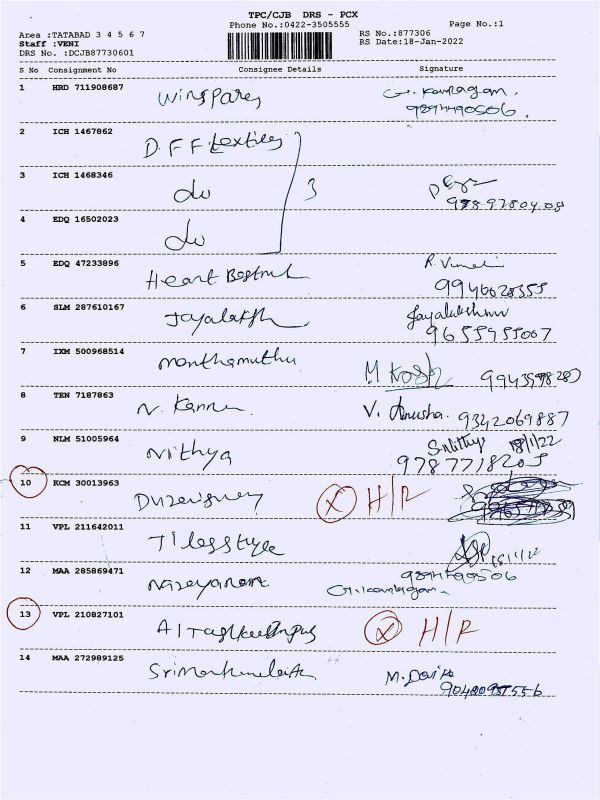 TPC/CJB DRS - PCX
Phone No.:0422-3505555
Page No.:1
Area :TATABAD 3 4 5 6 7
RS No.:877306
Staff :VENI
RS Date:18-Jan-2022
DRS No. :DCJB87730601
S No Consignment No Consignee Details Signature
1 HRD 711908687 Winspares G. Kanagam.
9894490506.
2 ICH 1467862 D F F textiles
3 ICH 1468346 do 3
4 EDQ 16502023 do
5 EDQ 47233896 Heart
9940028355
6 SLM 287610167 Jayalaksh Jayalakshmi
9655955007
7 IXM 500968514 manthamuthu M
8 TEN 7187863 N. Kannu V. Anusha. 9342069887
9 NLM 51005964 Nithya 18/1/22
9787718205
10 KCM 30013963 X H/R
11 VPL 211642011 18/1/22
12 MAA 285869471 Narayanan 9894490506
G. Kanagam.
13 VPL 210827101 X H/R
14 MAA 272989125 M.